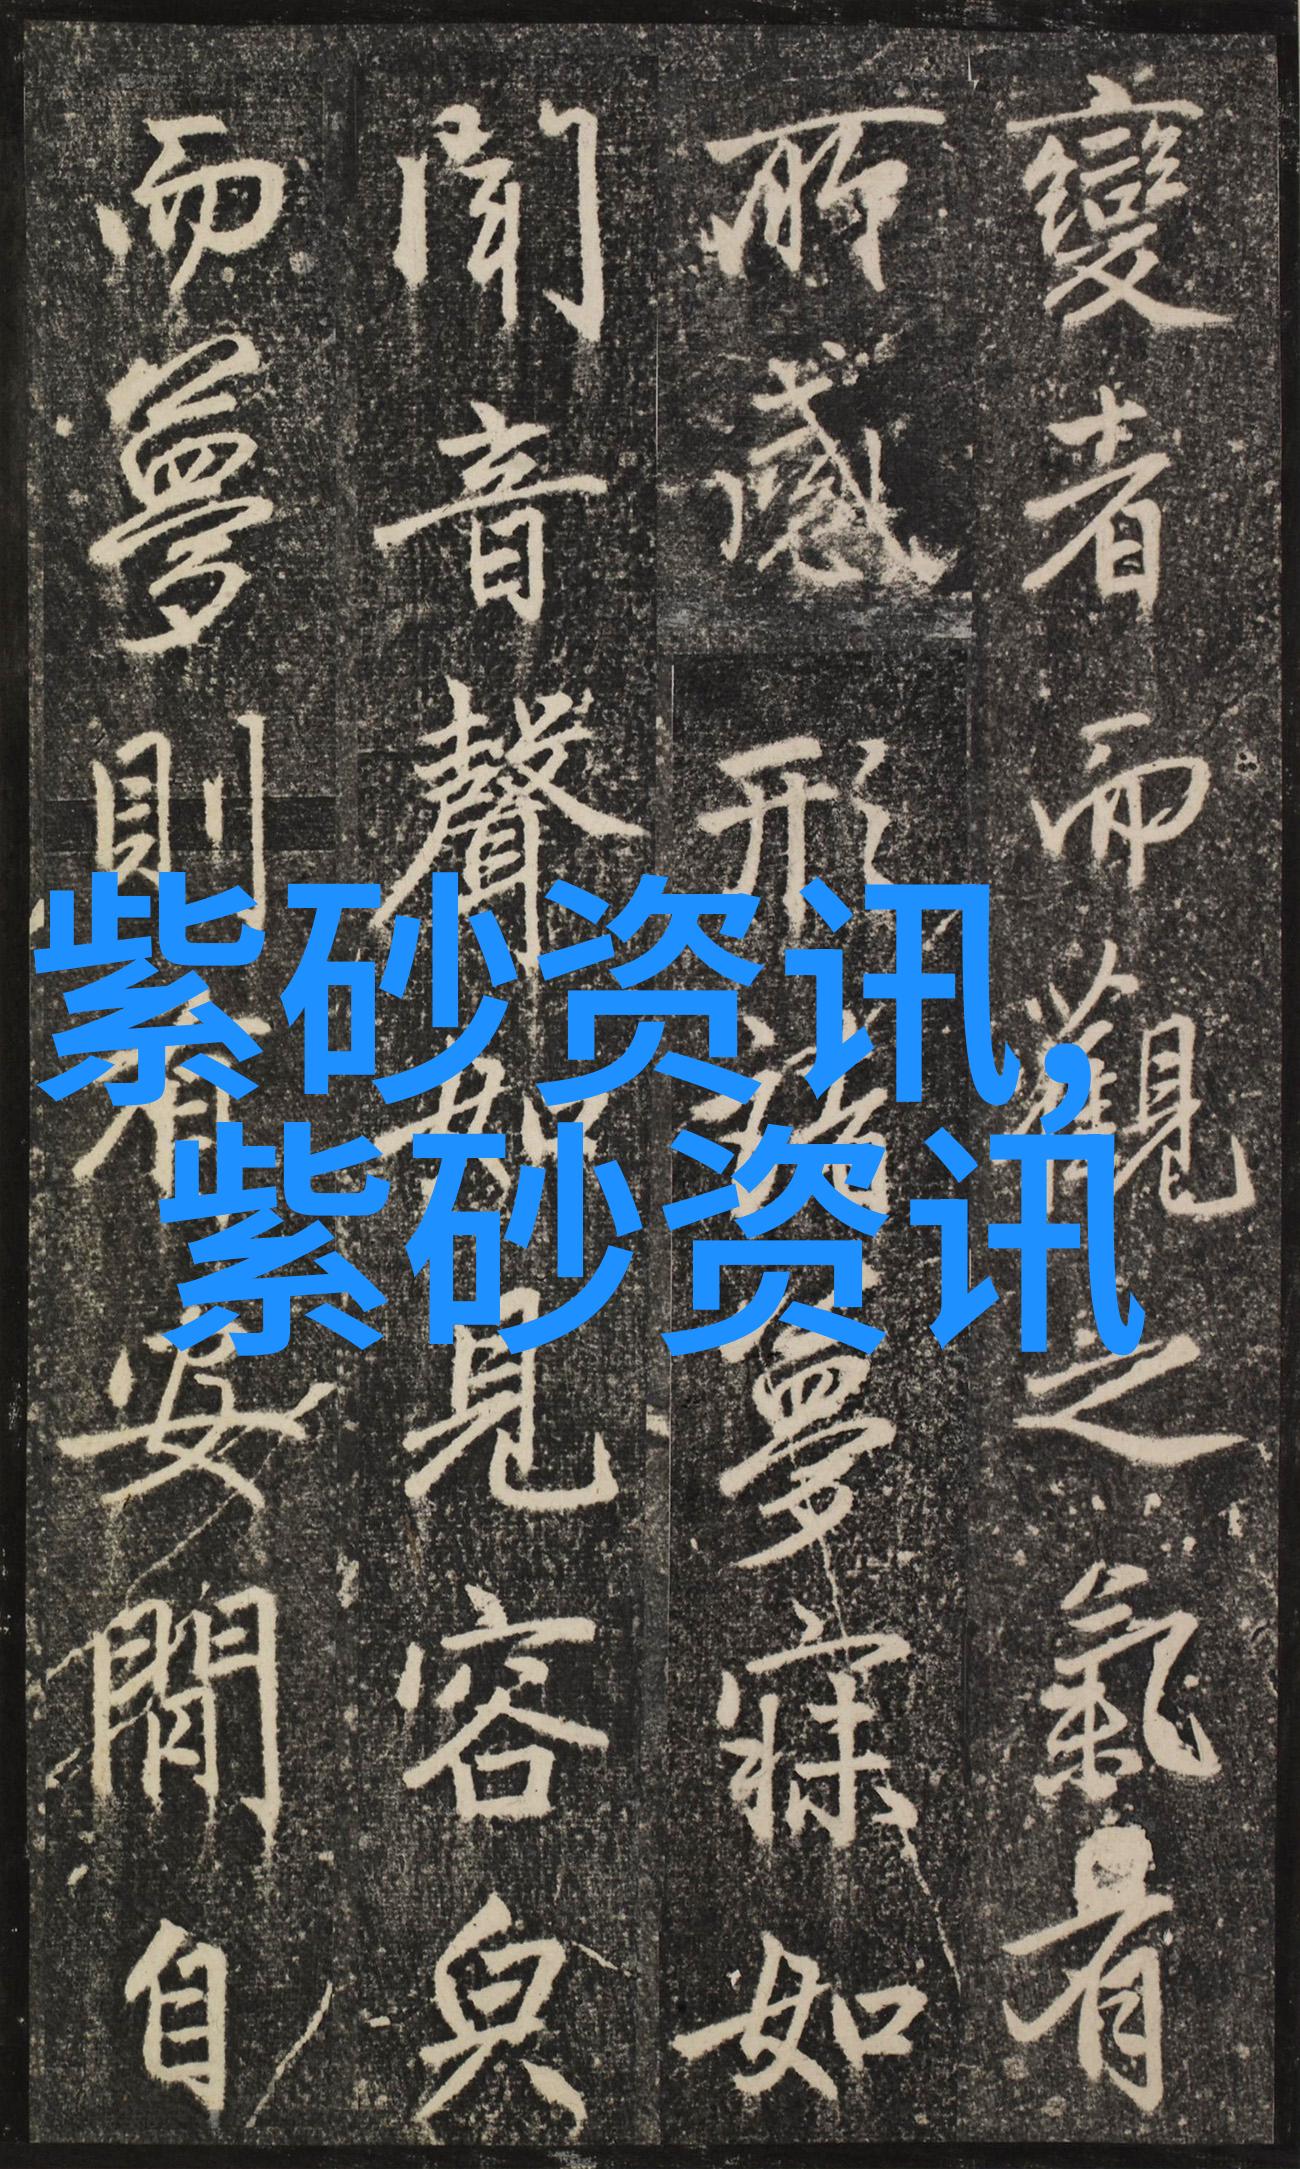 變者而觀之氣有
所感形諸夢寐如
聞音聲如見容皃
而夢則有安閒自
紫砂资讯,
紫砂资讯